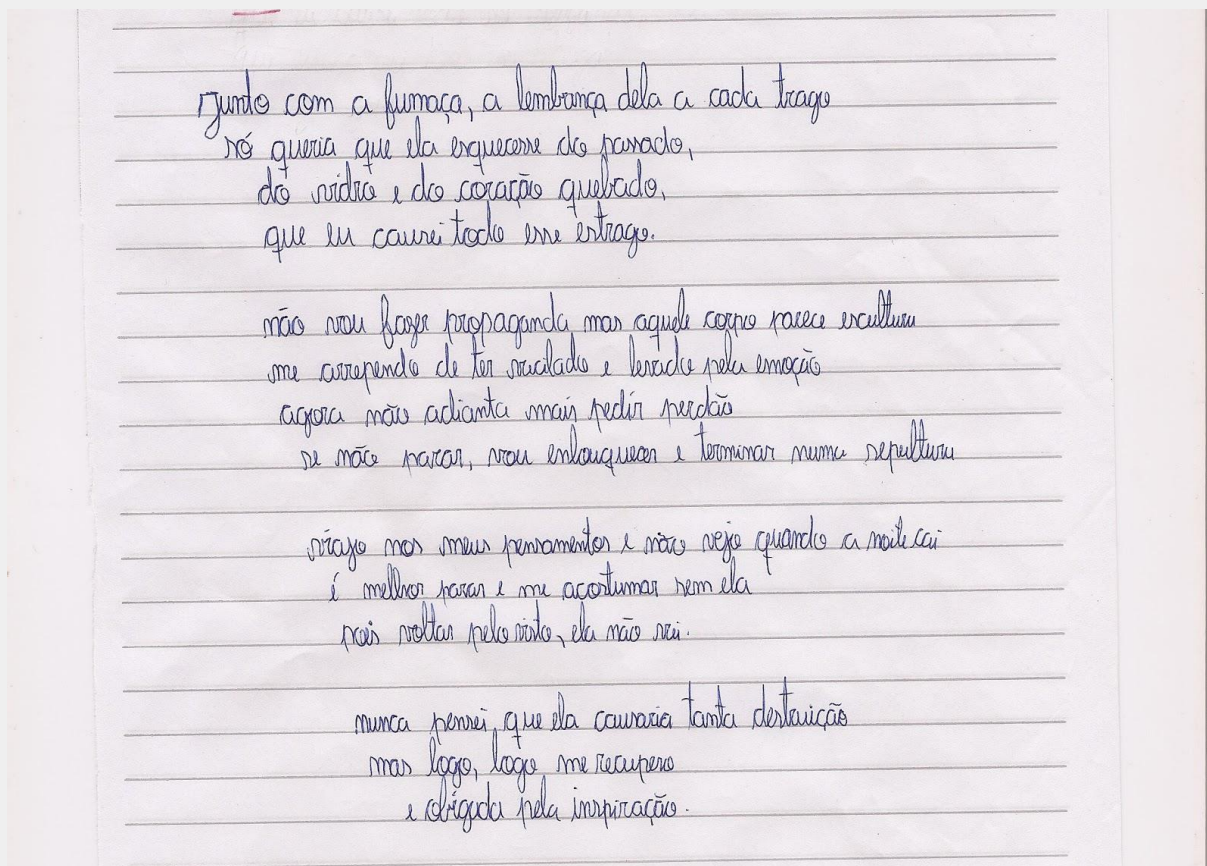 Junto com a fumaça, a lembrança dela a cada trago
só queria que ela esquecesse do passado,
do vidro e do coração quebado,
que eu causei todo esse estrago.
não vou fazer propaganda mas aquele corpo parece escultura
me arrependo de ter vacilado e levado pela emoção
agora não adianta mais pedir perdão
se não parar, vou enlouquecer e terminar numa sepultura
viajo nos meus pensamentos e não vejo quando a noite cai
é melhor parar e me acostumar sem ela
pois voltar pelo visto, ela não vai.
nunca pensei, que ela causaria tanta destruição
mas logo, logo me recupero
e obrigada pela inspiração.